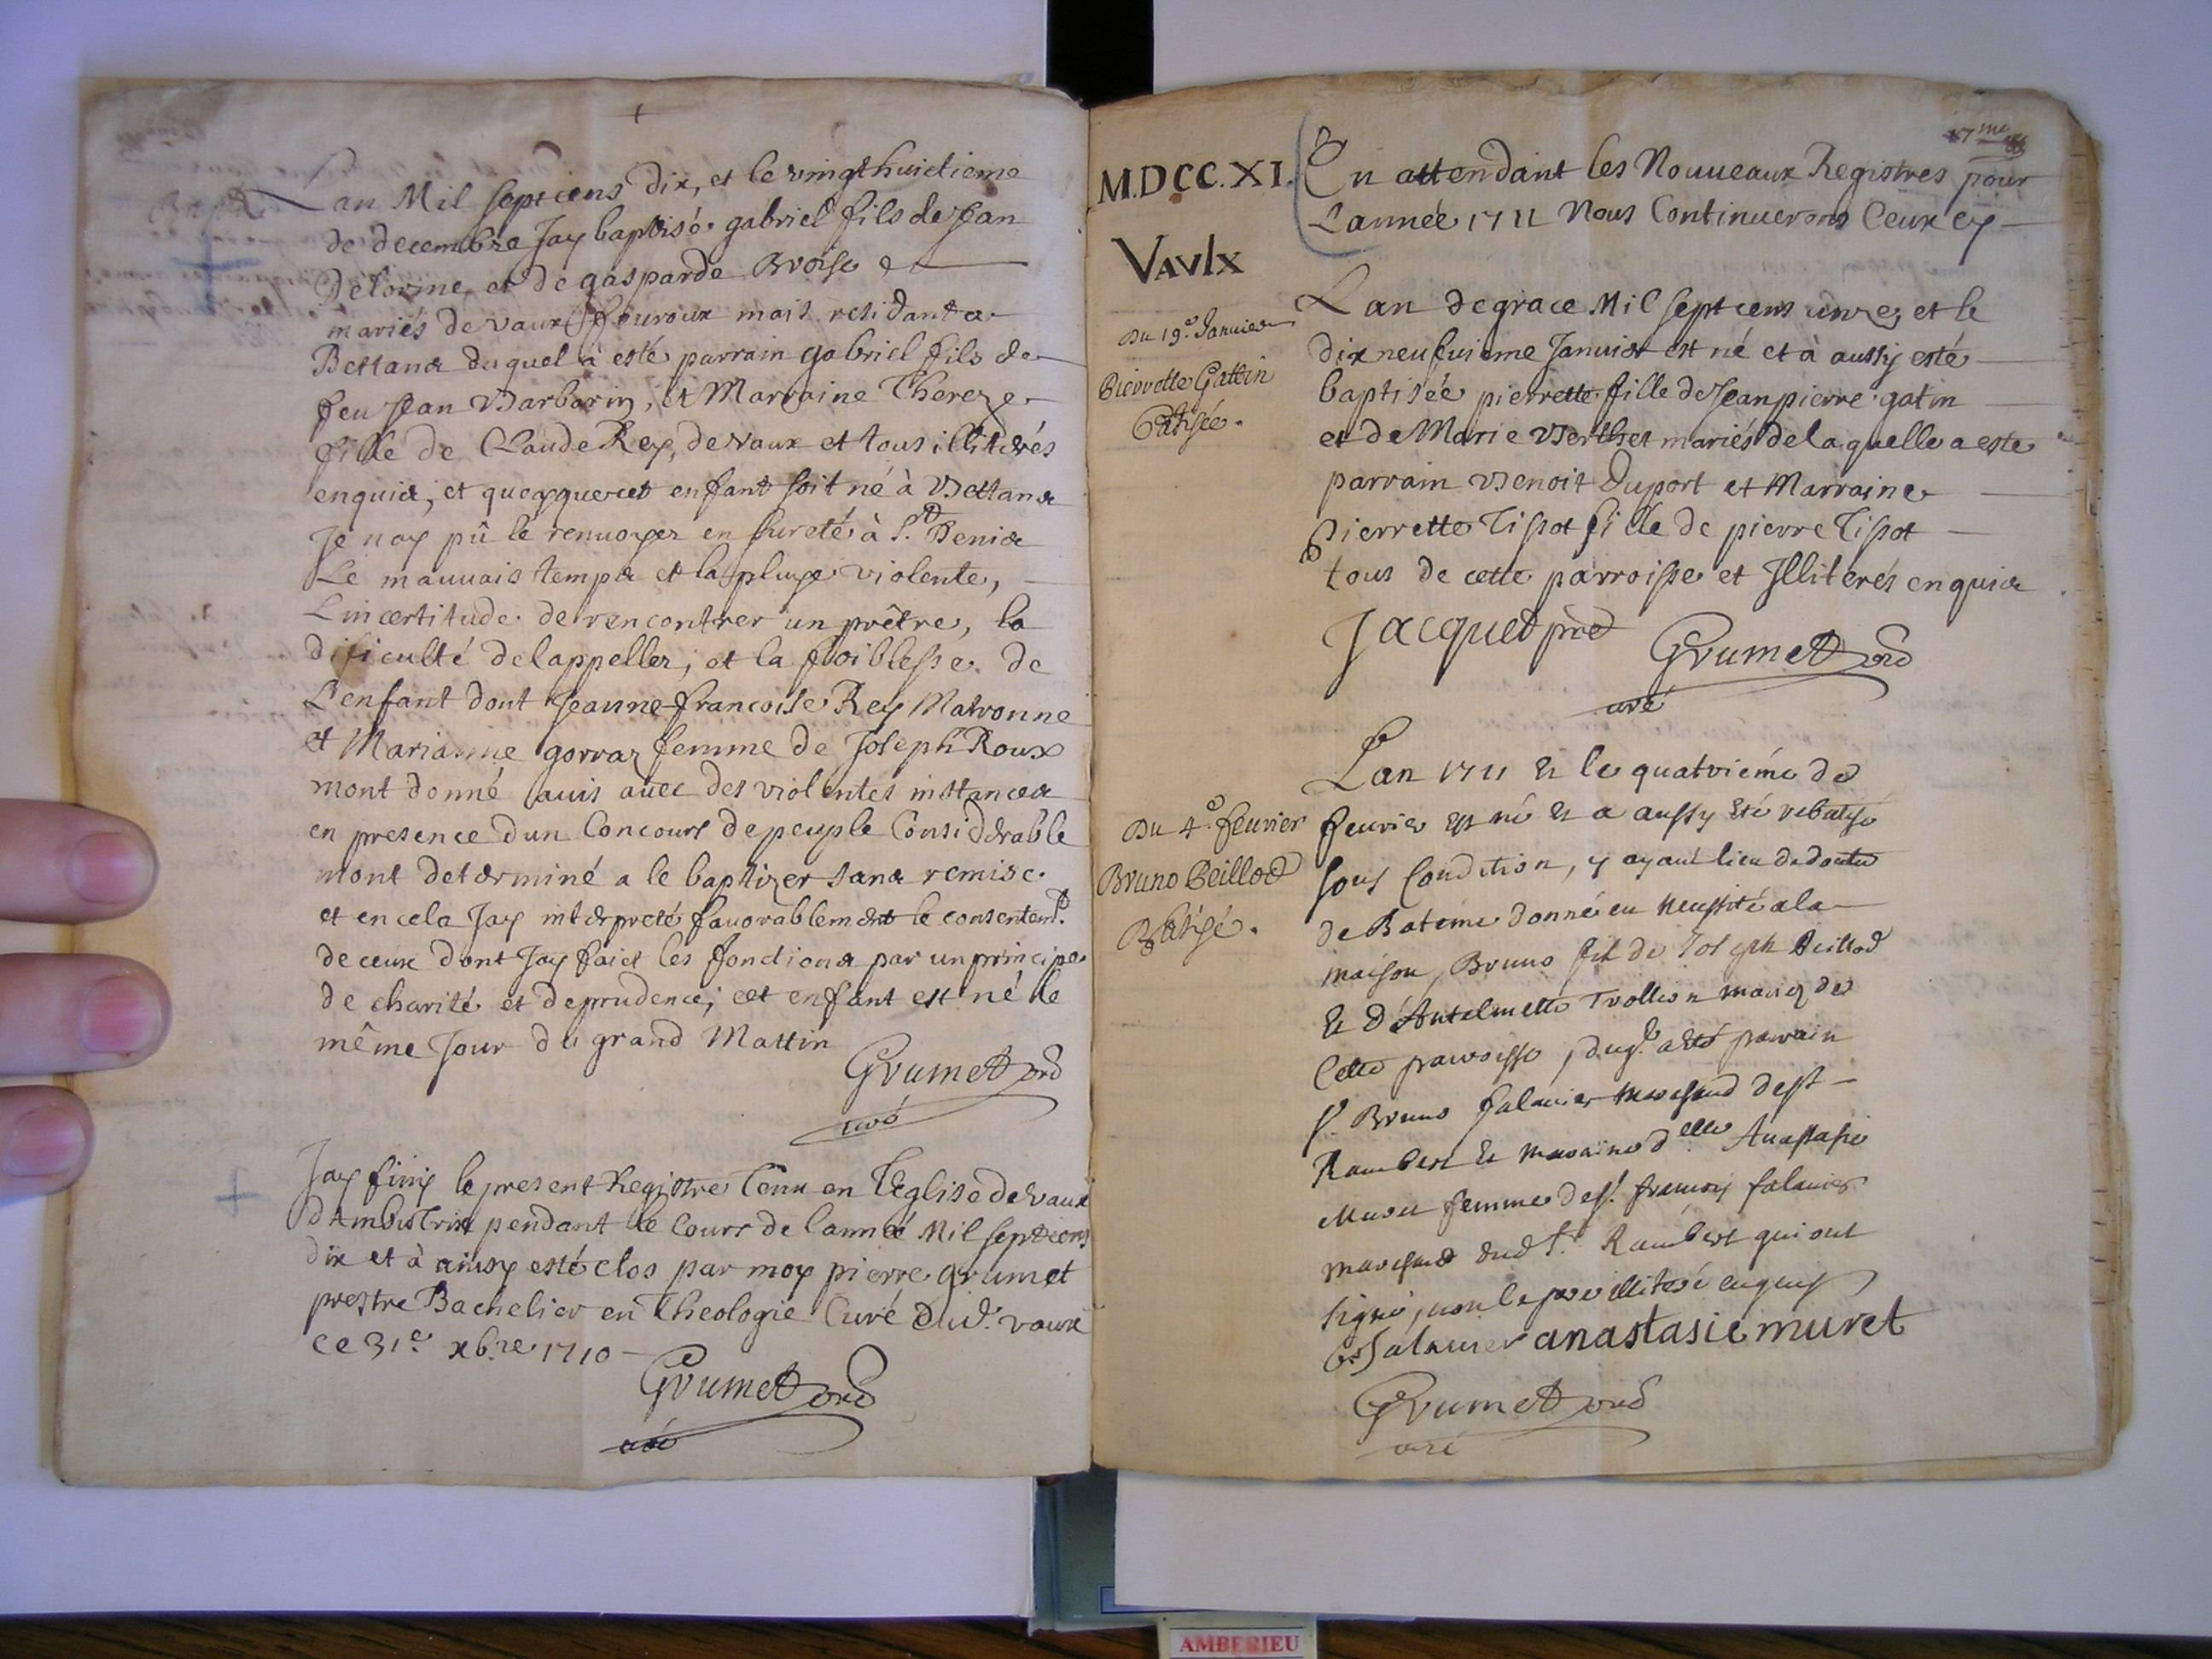 Lan Mil sept cens dix, et le vingthuictieme
de decembre Jay baptisé gabriel fils de Jean
Delorme et de gasparde
mariés de vaux mais residant a
Bettans duquel à esté parrain gabriel fils de
feu Jean Barbarin, et Marraine Thereze
fille de Claude Rey, de vaux et tous illiterés
enquis, et quoyque cet enfant soit né à Bettans
Je nay pû le renuoyer en sureté à St. Denis
Le mauuais temps et la pluye violente,
Lincertitude de rencontrer un prêtre, la
dificulté delappeller, et la foiblesse de
Lenfant dont Jeanne francoise Rey Matronne
et Marianne gorraz femme de Joseph Roux
mont donné auis auec des violentes instances
en presence dun Concours de peuple Considerable
mont determiné a le baptizer sans remise.
et en cela Jay interpreté fauorablement le consentemt.
de ceux dont Jay faict les fonctions par un principe
de charité et deprudence; cet enfant est né le
même Jour du grand Mattin
Grumet
curé
Jay finis le present Registre tenu en Léglise de Vaux
pendant le Cours de lannée Mil sept cens
dix et à ainsy esté clos par moy pierre grumet
prestre Bachelier en Theologie Curé dud. vaux
ce 31e. xbre 1710
Grumet
curé
17me
M.DCC.XI.
En attendant les Nouueaux Registres pour
Lannée 1711 Nous Continuerons Ceux cy
VAVLX
Du 19e. Januier
Pierrette Gattin
Batisée.
Lan de grace Mil sept cens unze, et le
dix neufuieme Januier est né et à aussy esté
baptisée pierrette fille de Jean pierre gatin
et de Marie Berthet mariés de laquelle a esté
parrain Benoit Duport et Marraine
Pierrette Tissot fille de pierre Tissot
tous de cette parroisse et Illiterés enquis
Jacquet
Grumet
curé
Du 4e. feurier
Bruno Beillod
Batisé.
Lan 1711 & le quatriéme de
feurier est né & a aussy été rebatisé
sous Condition, y ayant lieu de douter
de Bateme donné en necessité a la
maison, Bruno fils de Joseph Beillod
& d'Antelmette Trollion mariez de
Cette parroisse, duql. a été parrain
sr. Bruno Salauier marchand de st
Rambert & maraine delle Anastasie
Muret femme de sr. francois Salauier
marchand dud St. Rambert qui ont
signé, non le pere illiteré enquis
Salauier anastasie muret
Grumet
curé
AMBERIEU